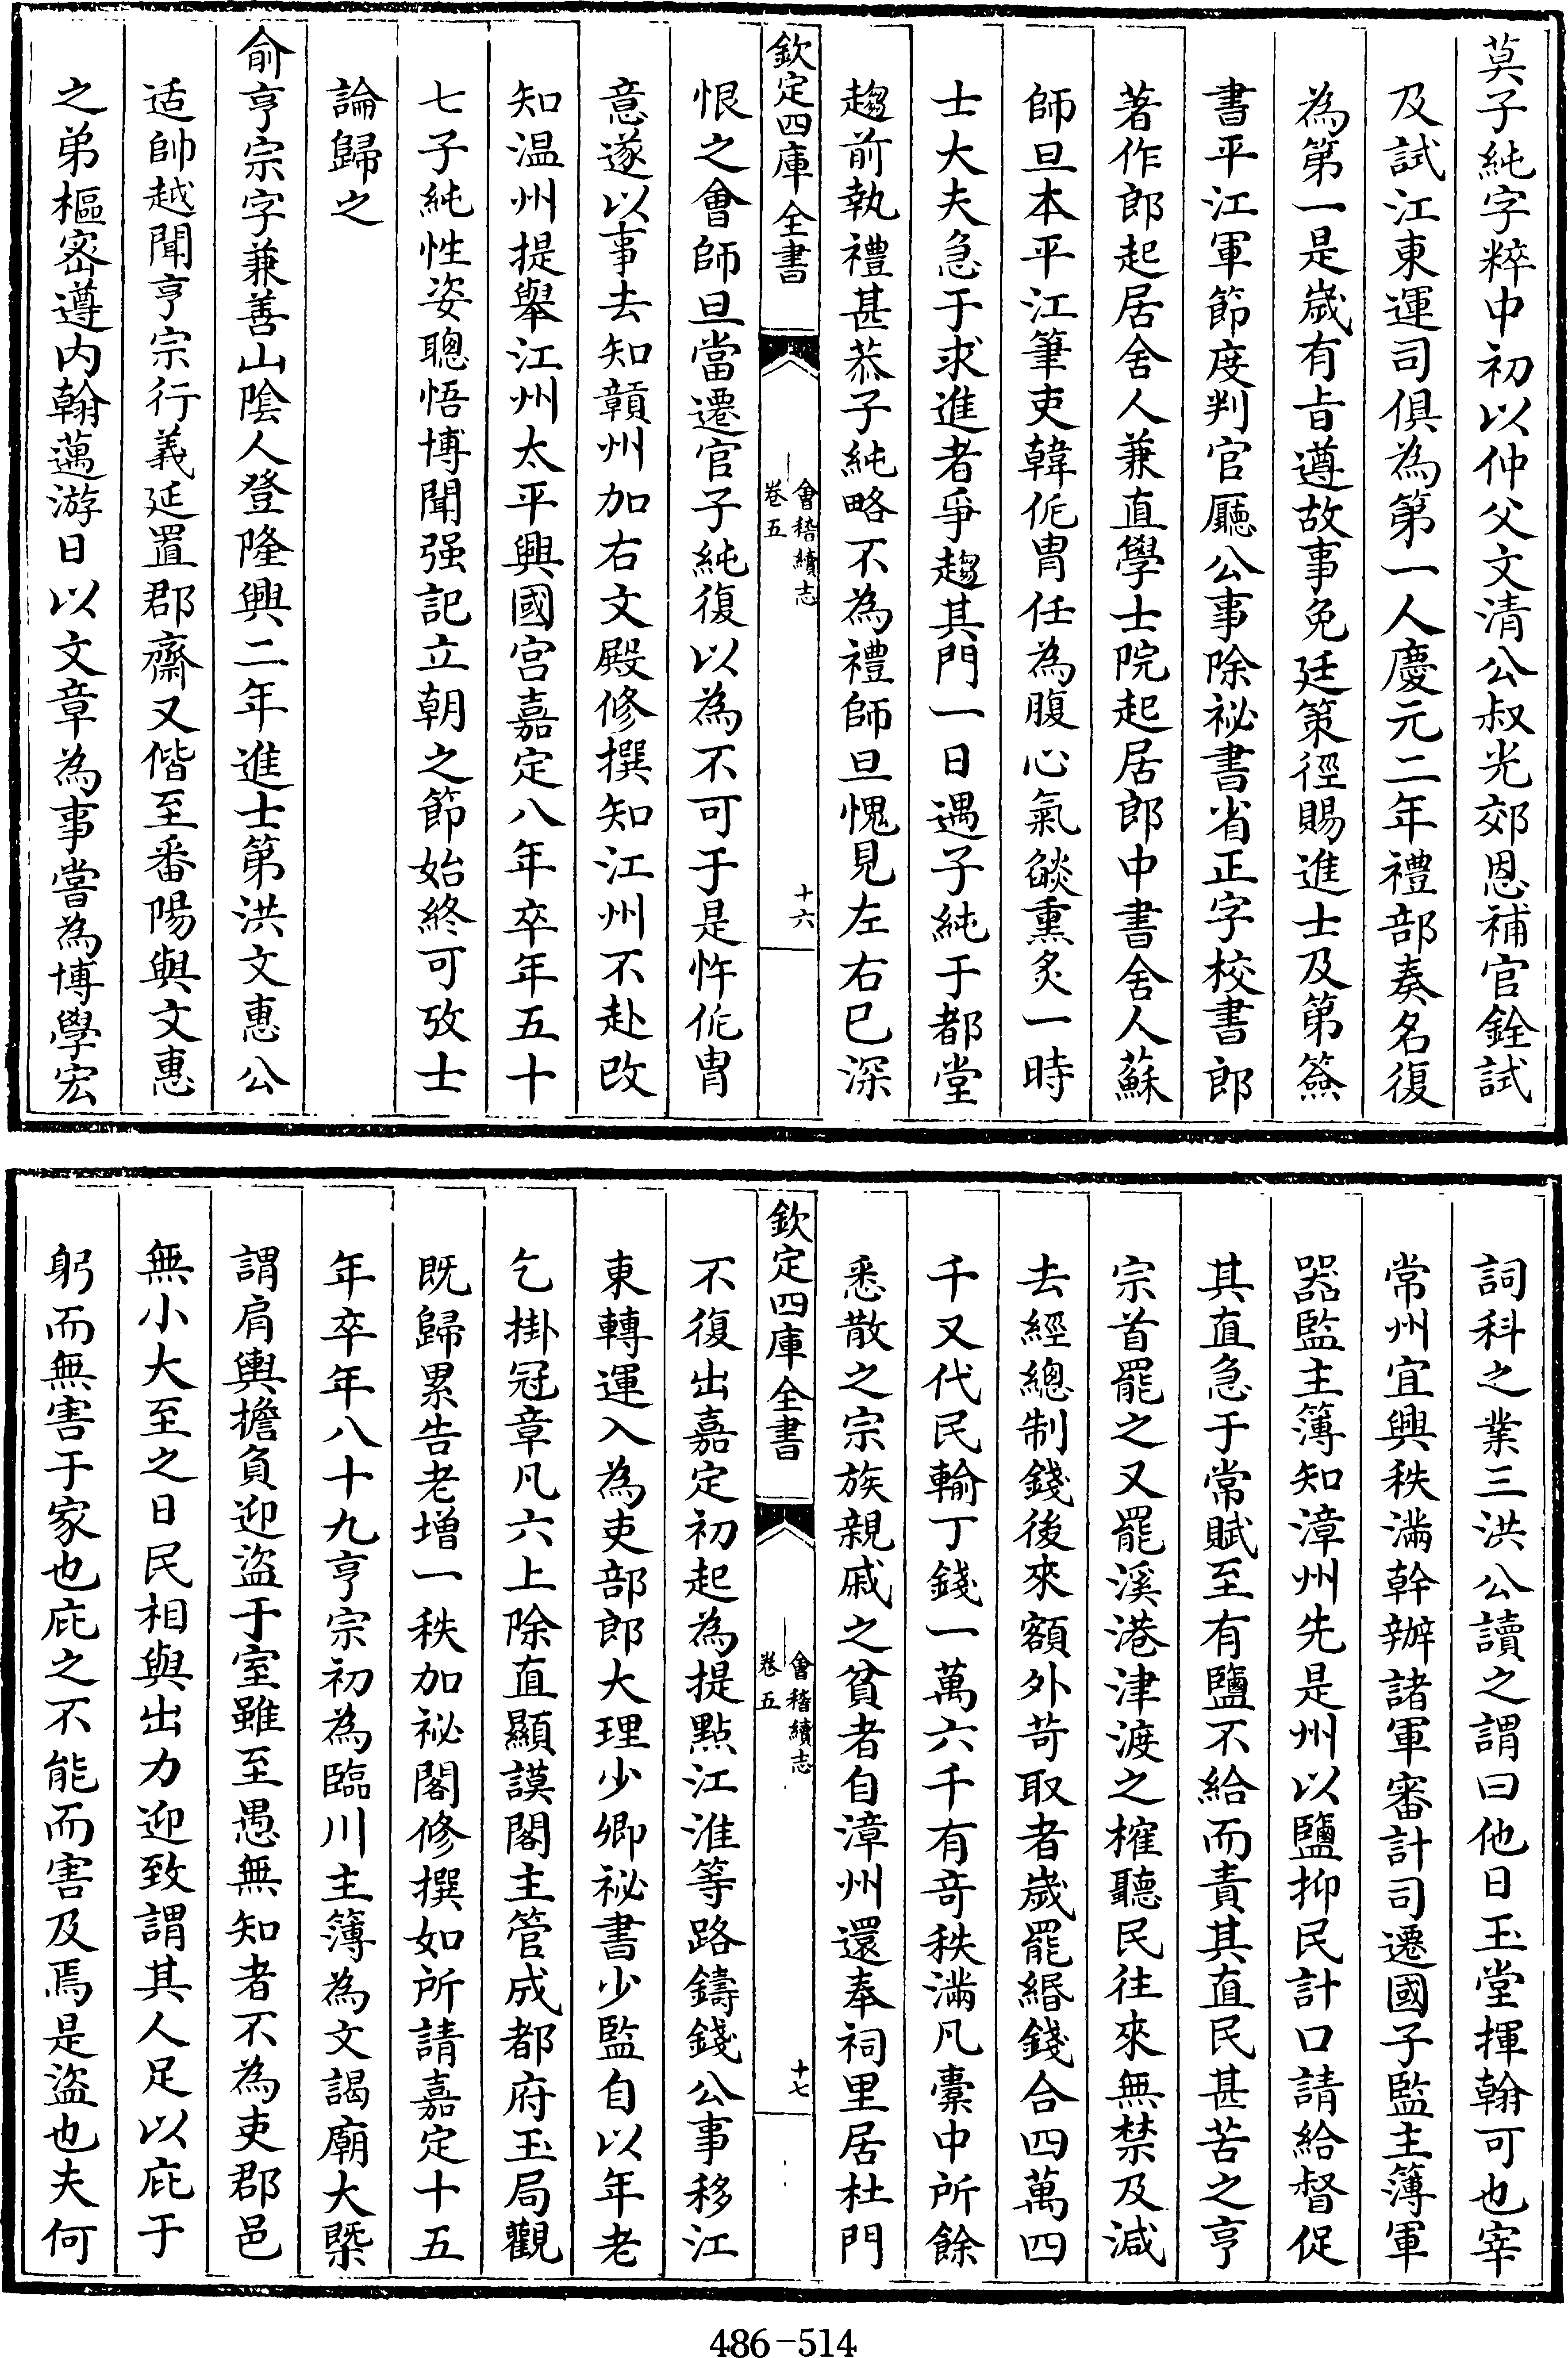 莫子純字粹中初以仲父文清公叔光郊恩補官銓試
及試江東運司俱為第一人慶元二年禮部奏名復
為第一是嵗有旨遵故事免廷策徑賜進士及第簽
書平江軍節度判官廳公事除祕書省正字校書郎
著作郎起居舍人兼直學士院起居郎中書舍人蘇
師旦本平江筆吏韓侂胄任為腹心氣燄熏炙一時
士大夫急于求進者爭趨其門一日遇子純于都堂
趨前執禮甚恭子純略不為禮師旦愧見左右已深
欽定四庫全書
會稽續志
卷五
十六
恨之會師旦當遷官子純復以為不可于是忤侂胄
意遂以事去知贑州加右文殿修撰知江州不赴改
知温州提舉江州太平興國宫嘉定八年卒年五十
七子純性姿聰悟博聞强記立朝之節始終可攷士
論歸之
俞亨宗字兼善山隂人登隆興二年進士第洪文惠公
适帥越聞亨宗行義延置郡齋又偕至番陽與文惠
之弟樞宻遵内翰邁游日以文章為事嘗為博學宏
詞科之業三洪公讀之謂曰他日玉堂揮翰可也宰
常州宜興秩滿幹辦諸軍審計司遷國子監主簿軍
器監主簿知漳州先是州以鹽抑民計口請給督促
其直急于常賦至有鹽不給而責其直民甚苦之亨
宗首罷之又罷溪港津渡之榷聽民往來無禁及減
去經總制錢後來額外苛取者嵗罷緡錢合四萬四
千又代民輸丁錢一萬六千有竒秩滿凡橐中所餘
悉散之宗族親戚之貧者自漳州還奉祠里居杜門
欽定四庫全書
會稽續志
卷五
十七
不復出嘉定初起為提點江淮等路鑄錢公事移江
東轉運入為吏部郎大理少卿祕書少監自以年老
乞掛冠章凡六上除直顯謨閣主管成都府玉局觀
既歸累告老增一秩加祕閣修撰如所請嘉定十五
年卒年八十九亨宗初為臨川主簿為文謁廟大槩
謂肩輿擔負迎盜于室雖至愚無知者不為吏郡邑
無小大至之日民相與出力迎致謂其人足以庇于
躬而無害于家也庇之不能而害及焉是盜也夫何
486-514